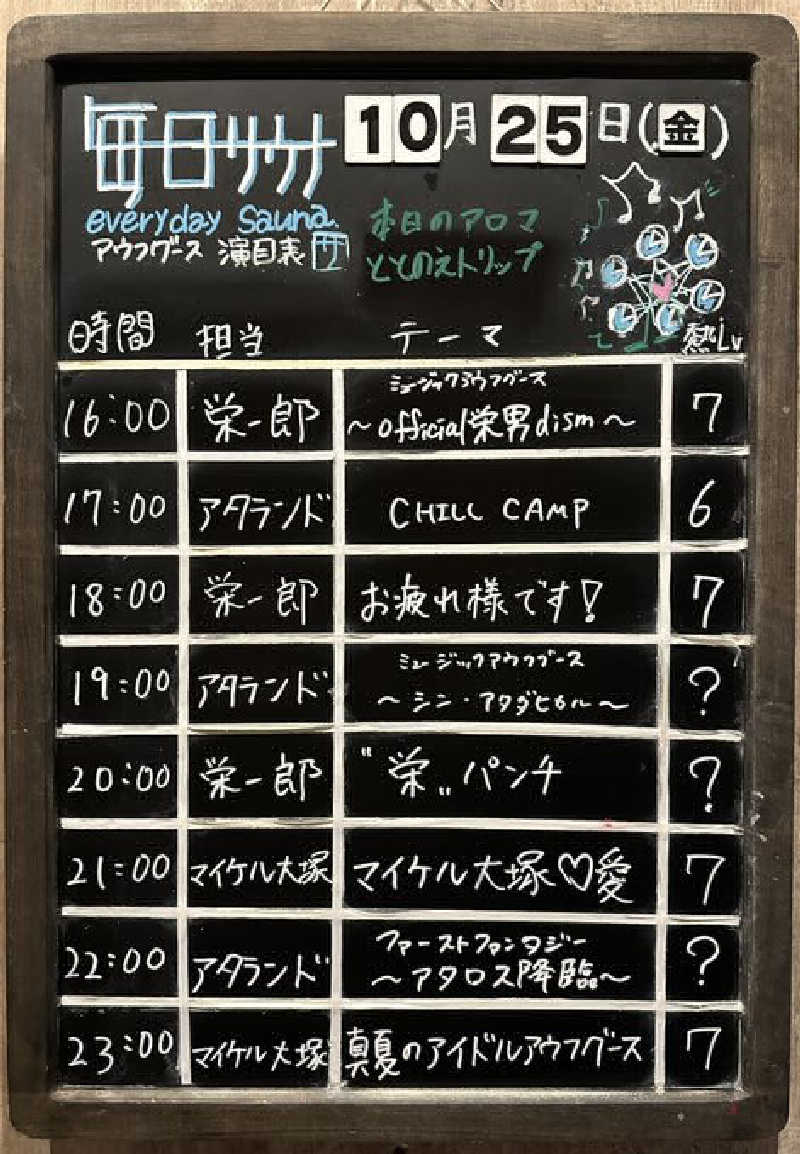 毎日サウナ 10月25日(金)
everyday Sauna
アウフグース 演目表 サ
本日のアロマ
ととのえトリップ
時間 担当 テーマ 熱Lv
ミュージックアウフグース
16:00 栄一郎 〜official栄男dism〜 7
17:00 アタランド CHILL CAMP 6
18:00 栄一郎 お疲れ様です! 7
ミュージックアウフグース
19:00 アタランド 〜シン・アタダヒカル〜 ?
20:00 栄一郎 "栄"パンチ ?
21:00 マイケル大塚 マイケル大塚♡愛 7
ファーストファンタジー
22:00 アタランド 〜アタロス降臨〜 ?
23:00 マイケル大塚 真夏のアイドルアウフグース 7